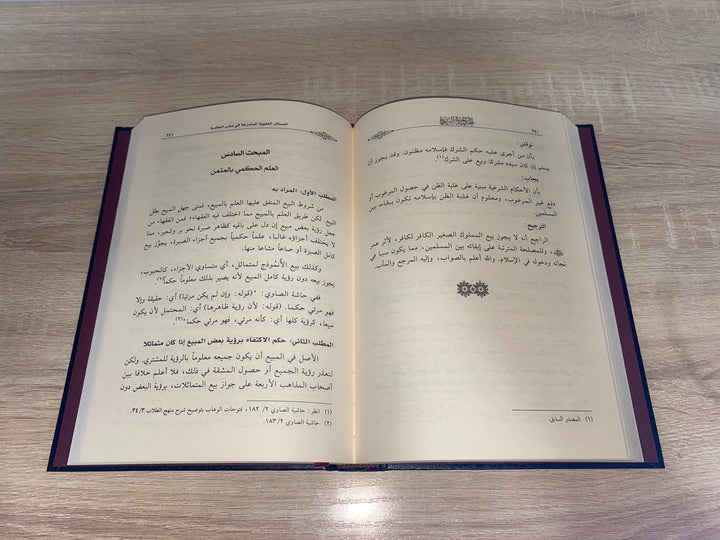 ٢٤٠
نوقش:
بأن من أجرى عليه حكم الشرك فإسلامه مظنون، وقد يجوز أن
يسلم إذا كان سيده مشركا وبيع على الشرك(١).
يجاب:
بأن الأحكام الشرعية مبنية على غلبة الظن في حصول المرغوب أو
دفع غير المرغوب، ومعلوم أن غلبة الظن بإسلامه تكون ببقاءه بين
المسلمين.
الترجيح:
الراجح أنه لا يجوز بيع المملوك الصغير الكافر لكافر، لأثر عمر
، وللمصلحة المترتبة على إبقائه بين المسلمين، مما يكون سببا في
نجاته ودخوله في الإسلام. والله أعلم بالصواب، وإليه المرجع والمآب.
(١) المصدر السابق.
المسائل الفقهية المندرجة في
٢٤١
المبحث السادس
العلم الحكمي بالمثمن
المطلب الأول: المراد به
من شروط البيع المتفق عليها العلم بالمبيع، فمتى جهل المبيع بطل
البيع. لكن طريق العلم بالمبيع مما اختلف فيه الفقهاء؛ فمن الفقهاء من
جعل رؤية بعض مبيع إن دل على باقيه كظاهر صبرة نحو بر وشعير، مما
لا يختلف أجزاؤه غالبا، علماً حكمياً بجميع أجزاء الصبرة، يجوّز بيع
كامل الصبرة أو صاعاً مشاعا منها.
وكذلك بيع الأنموذج لمتماثل، أي متساوي الأجزاء، كالحبوب،
يجوز بيعه دون رؤية كامل المبيع لأنه يصير بذلك معلوماً حكما(١).
ففي حاشية الصاوي: "(قوله: وإن لم يكن مرئيا) أي: حقيقة وإلا
فهو مرئي حكما. (قوله: لأن رؤية ظاهرها) أي: المحتمل لأن يكون
مبيعا، كرؤية كلها أي: كأنه مرئي، فهو مرئي حكما"(٢).
المطلب الثاني: حكم الاكتفاء برؤية بعض المبيع إذا كان متماثلا
الأصل في المبيع أن يكون جميعه معلوماً بالرؤية للمشتري. ولكن
لتعذر رؤية الجميع أو حصول المشقة في ذلك، فلا أعلم خلافا بين
أصحاب المذاهب الأربعة على جواز بيع المتماثلات، برؤية البعض دون
(١) انظر: حاشية الصاوي ٢/ ١٨٢، فتوحات الوهاب بتوضيح شرح منهج الطلاب ٣/ ٣٤.
(٢) حاشية الصاوي ٢/ ١٨٣.